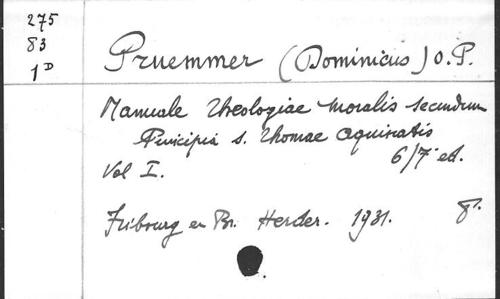 275
83
1D
Pruemmer (Dominicus) O.P.
Manuale Theologiae moralis secundum
Principia s. Thomae Aquinatis
6/7 ed.
Vol I.
Fribourg en Br. Herder. 1931. 8°.